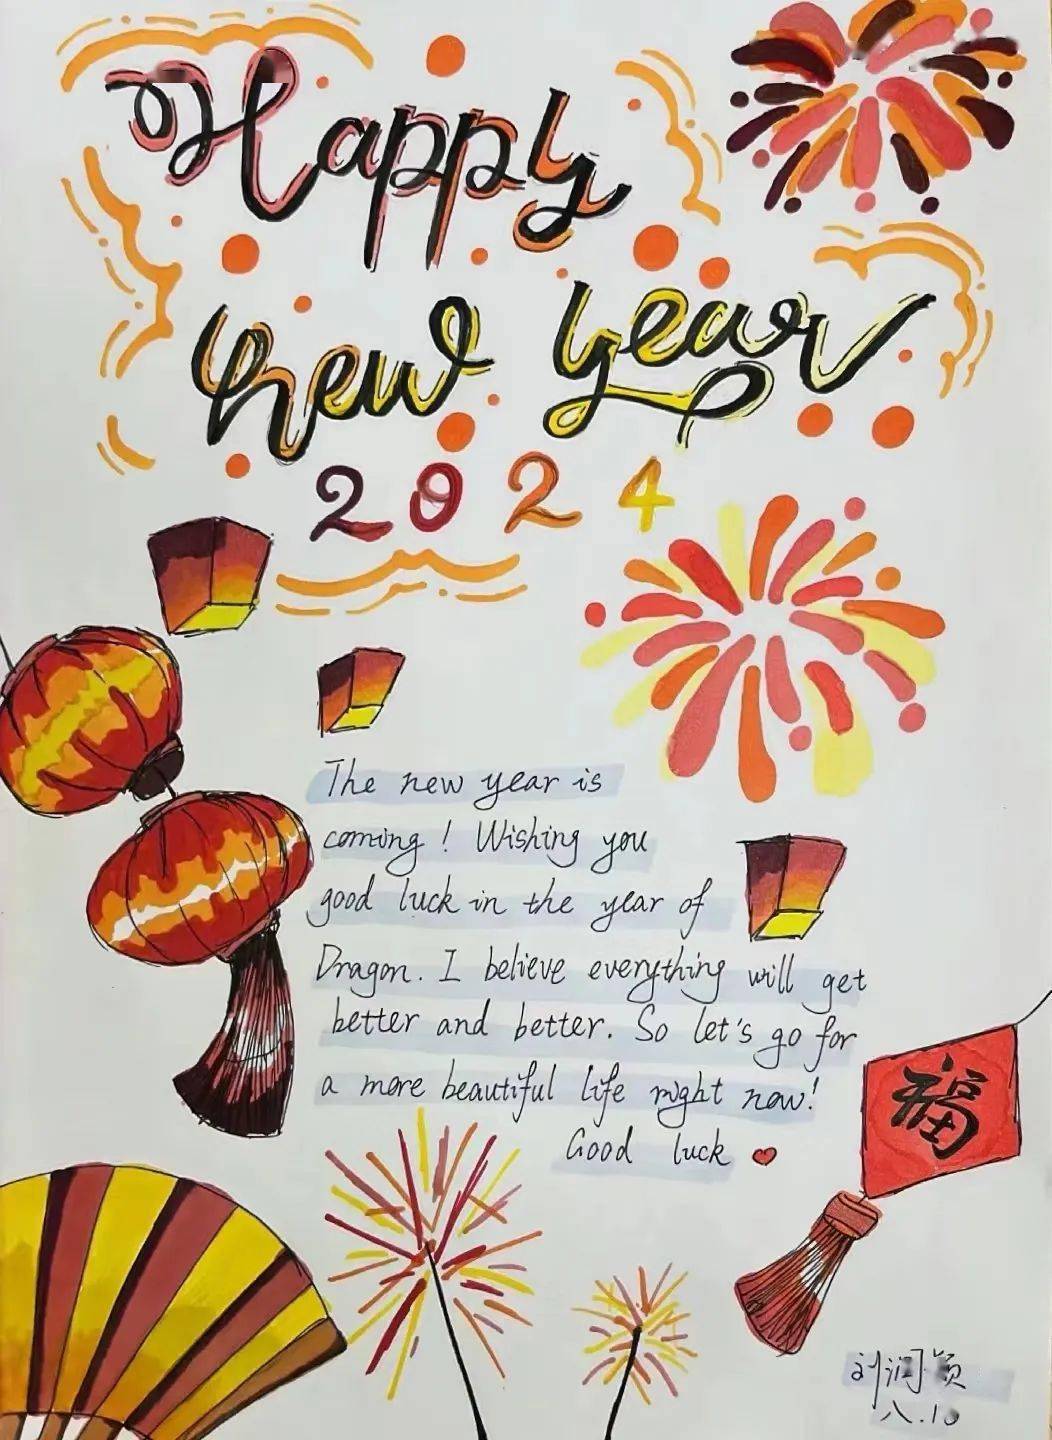 Happy
new year
2024
The new year is
coming! Wishing you
good luck in the year of
Dragon. I believe everything will get
better and better. So let's go for
a more beautiful life right now!
Good luck
福
刘润颖
八.10